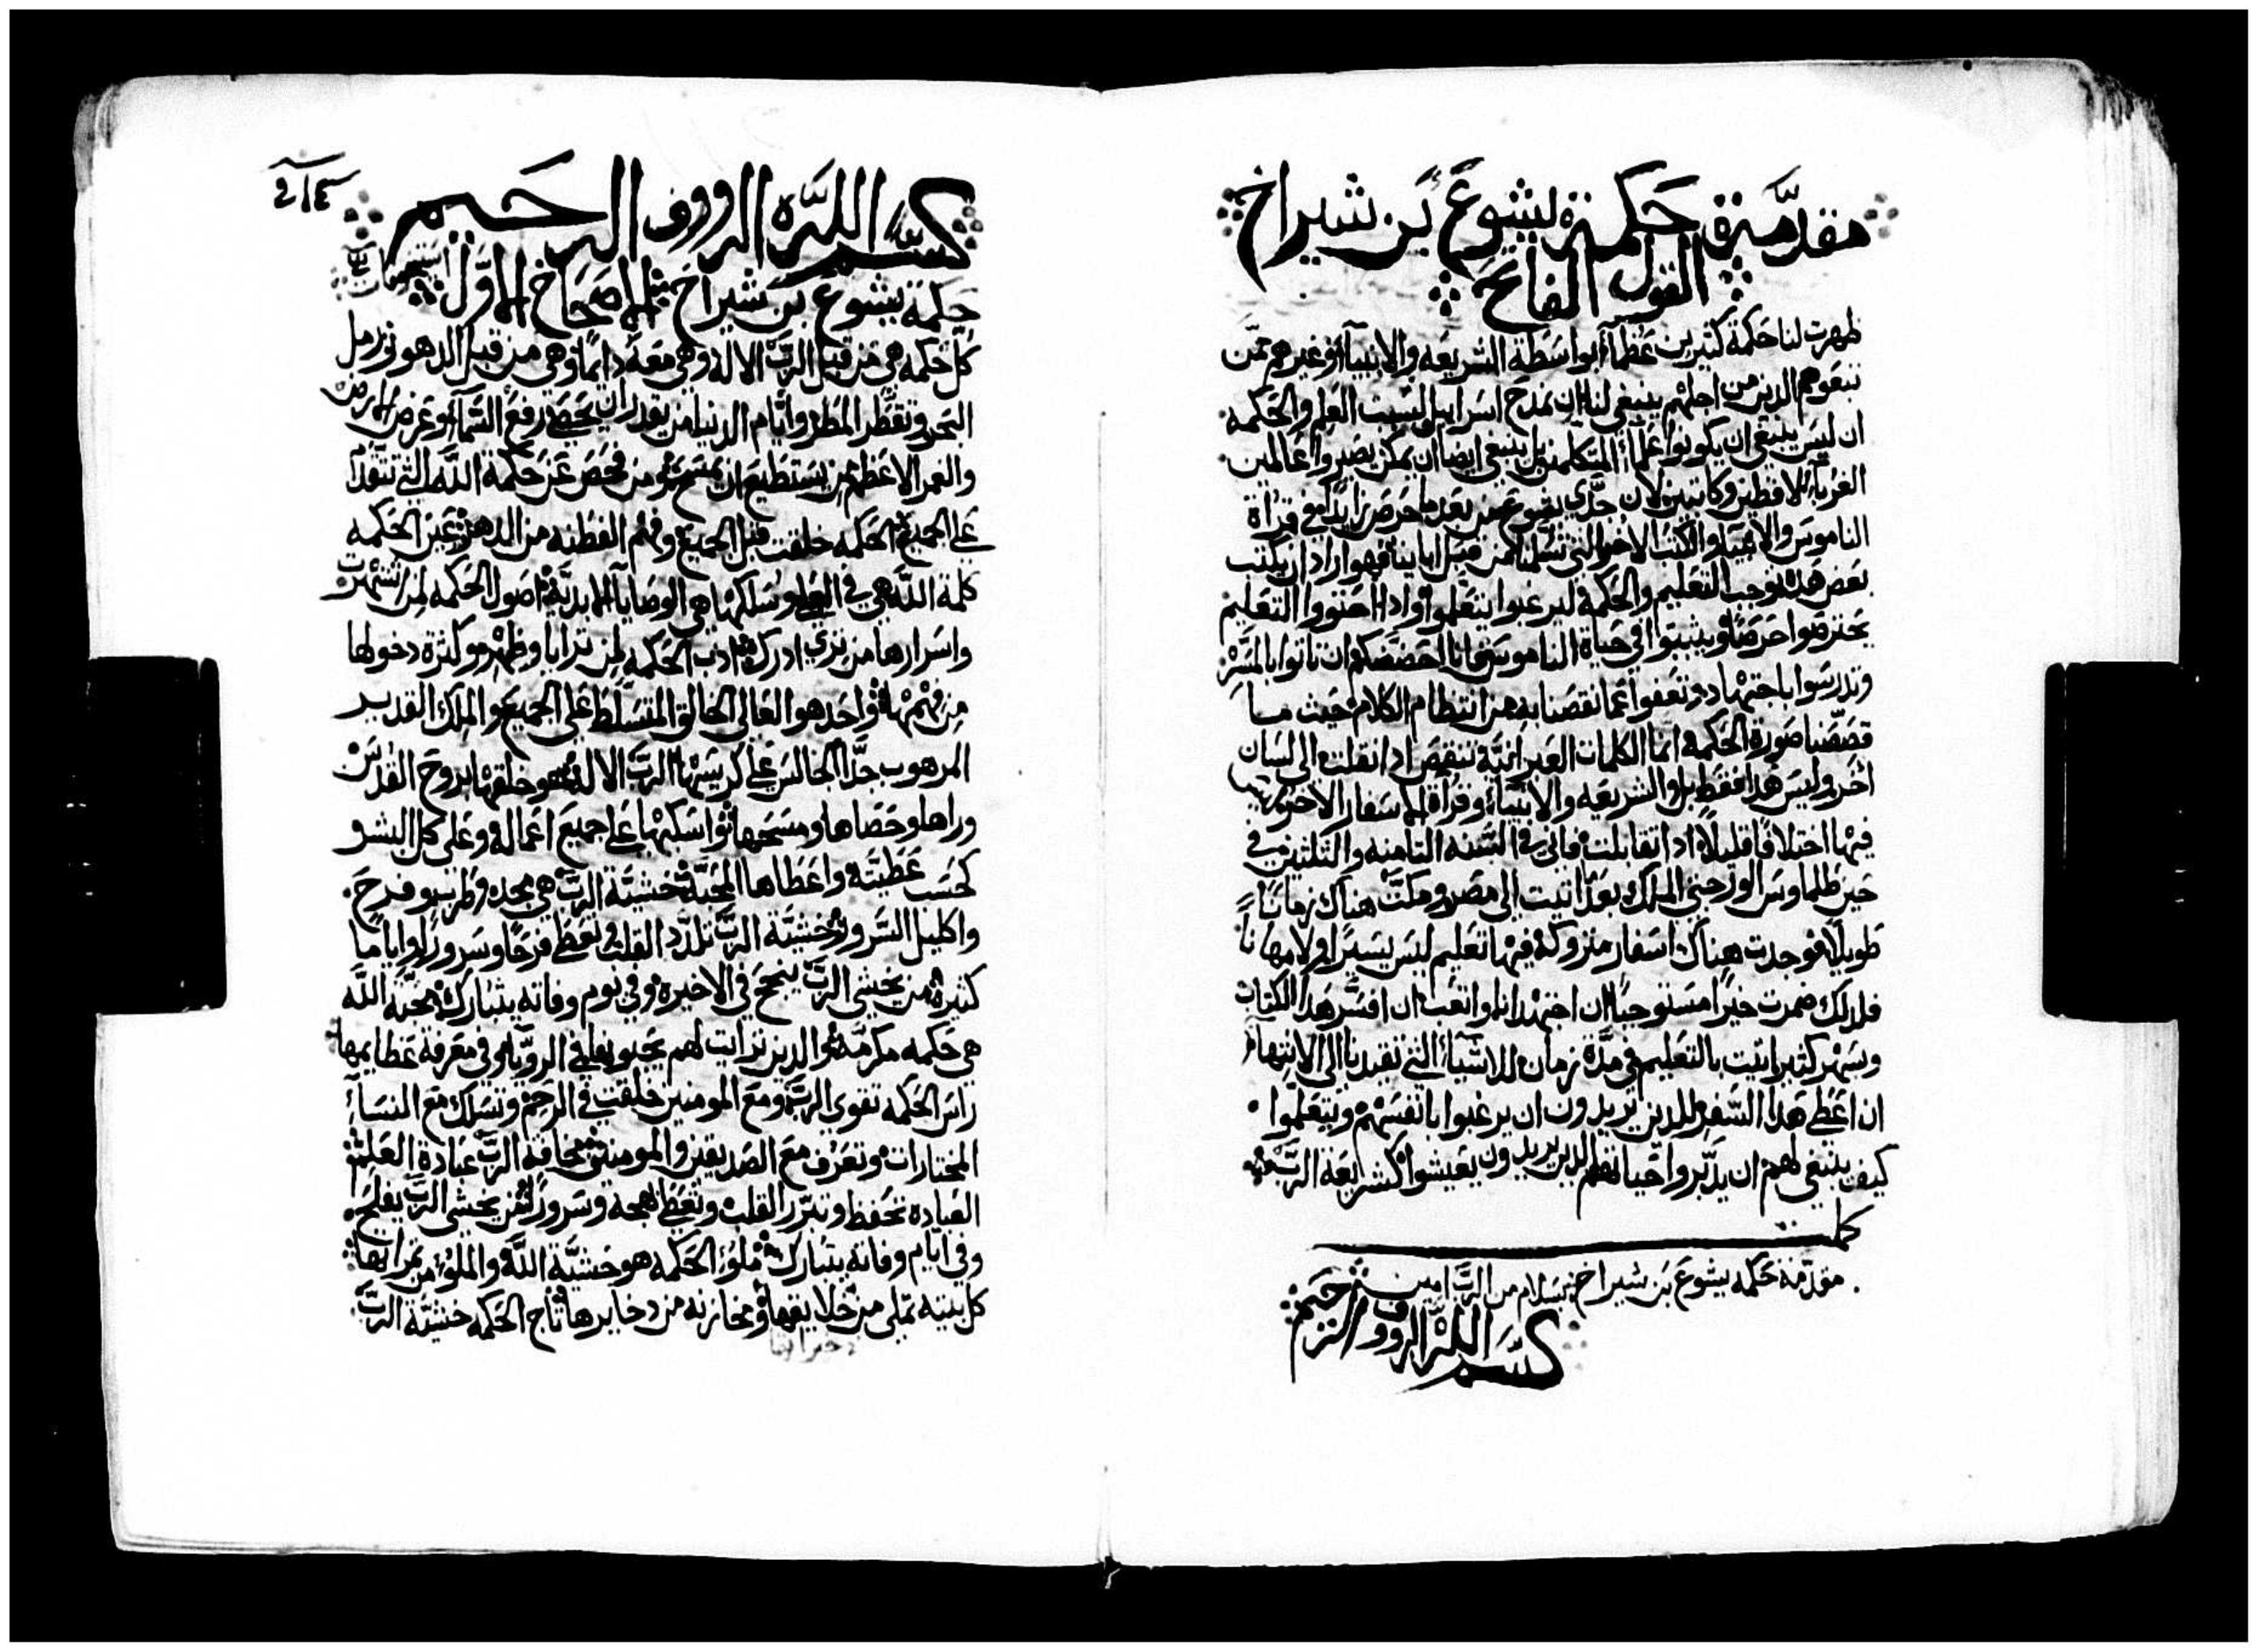 مقدمة حكمة يشوع بن شيراخ
القول الفاتح
ظهرت لنا حكمة كثيرين عظماء بواسطة الشريعه والانبياء وغيرهم ممن
تبعوهم الذين من اجلهم ينبغي لنا ان نمدح اسراييل لسبب العلم والحكمه
ان ليس ينبغي ان يكونوا علماء المتكلمين بل ينبغي ايضا ان يمكن يصيروا عالمين
الغربآء لافظين وكاتبين لان جدي يشوع من بعد ما حرص زايدا في قراة
الناموس والانبيا والكتب الاخر التي تسلمنا من قبل ابايناء فهو اراد ان يكتب
بعض هذه يوجب التعليم والحكمة ليرغبوا يتعلموا واذا احتووا التعليم
يحترصوا حرصا ويثبتوا في حياة الناموس فانا احضضكم ان تاتوا بالمسره
وتدرسوا باجتهاد وتعفوا عما نقصنا به من انتظام الكلام حيث ما
قصصنا صورة الحكمة انما الكلمات العبرانية تنقص اذا نقلت الى لسان
اخر وليس هذا فقط بل والشريعه والانبياء وقراة الاسفار الاخر
فيها اختلافا قليلا اذا تقابلت فاني في السنه التامنه والتلتين في
حين طلماوس الورجتي الملك بعد اتيت الى مصر ومكتت هناك زمانا
طويلا فوجدت هناك اسفار متروكة فيها تعليم ليس يسيرا ولا مهانا
فلذلك ضمرت خيرا مستوجبا ان اجتهد انا واتعب ان افسر هذا الكتاب
وسهر كثير اتيت بالتعليم في مدة زمان للاشيآء التي تقيدنا الى الانتهاء
ان اعطي هذا السفر للدين يريدون ان يرغبوا بانفسهم ويتعلموا
كيف ينبغي لهم ان يدبروا حياتهم الدين يريدون يعيشوا كشريعة الرب
كملت
مقدمة حكمه يشوع بن شيراخ بسلام من الرب امين
بسم الله الروف الرحيم
٢١٤
بسم الله الروف الرحيم
حكمة يشوع بن شيراخ الاصحاح الاول
كل حكمه هي من قبل الرب الاله وهي معه دايما وهي من قبل الدهور رمل
البحر وتقطر المطر وايام الدنيا من يقدر ان يحصي رفع السماء وعرض الارض
والغمر الاعظم من يستطيع ان يمسح ومن فحص عن حكمة الله التي تتقدم
على الجميع الحكمه خلقت قبل الجميع وفهم الفطنه من الدهر عين الحكمه
كلمة الله هي في العلو وسلكها هي الوصايا الابدية اصول الحكمه لمن اشتهرت
واسرارها من تري ادركه ادب الحكمه لمن ترايا وظهر وكثرة دخولها
من فهمها واحد هو العالي الخالق المتسلط على الجميع والملك القدير
المرهوب جدا الجالس على كرسيها الرب الاله هو خلقها بروح القدس
وراها وحصاها ومسحها واسكبها على جميع اعماله وعلى كل البشر
كحسب عطيته واعطاها لمحبيه خشية الرب هي مجد وطرب وفرح
واكليل السرور خشية الرب تلذد القلب وتعطي فرحا وسرورا واياما
كثيرة من يخشى الرب ينجح في الاخيره وفي يوم وفاته يتبارك محبة الله
هي حكمه مكرمه والدين ترايت لهم يحبوها في الرويا وفي معرفة عظايمها
راس الحكمه تقوى الرب ومع المومنين خلقت في الرحم وتسلك مع النسآء
المختارات وتعرف مع الصديقين والمومنين مخافة الرب عبادة العلم
العبادة تحفظ وتبرر القلب وتعطي بهجه وسرورا من يخشى الرب يفلح
وفي ايام وفاته يتبارك ملو الحكمه هو خشية الله والملو من تمراتها
كل بيته تملي من خلايقها ومخازنه من دخايرها تاج الحكمه خشية الرب